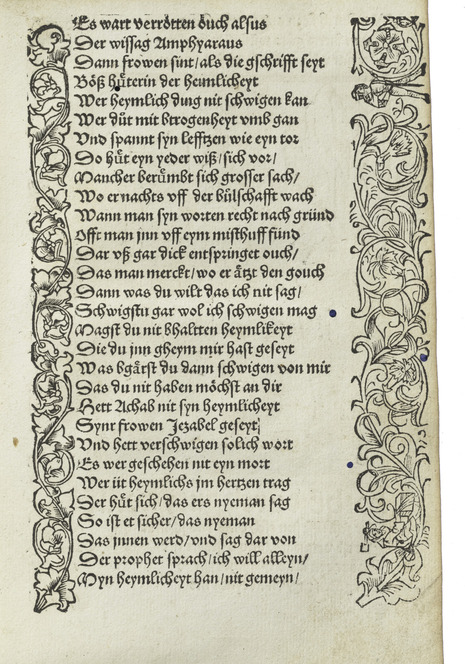 Es wart verrotten ouch alsus
Der wissag Amphyaraus
Dann frowen sint/als die gschrifft seyt
Bőß hůterin der heimlicheyt
Wer heymlich ding nit schwigen kan
Wer důt mit btrogenheyt vmb gan
Vnd spannt syn lefftzen wie eyn tor
Do hůt eyn yeder wiß/sich vor/
Mancher berůmbt sich grosser sach/
Wo er nachts vff der bůlschafft wach
Wann man syn worten recht nach gründ
Offt man jnn vff eym misthuff fünd
Dar vß gar dick entspringet ouch/
Das man merckt/wo er åtzt den gouch
Dann was du wilt das ich nit sag/
Schwigstu gar wol ich schwigen mag
Magst du nit bhaltten heymlikeyt
Die du jnn gheym mir hast geseyt
Was bgårst du dann schwigen von mir
Das du nit haben möchst an dir
Hett Achab nit syn heymlicheyt
Synr frowen Jezabel geseyt
Vnd hett verschwigen solich wort
Es wer geschehen nit eyn mort
Wer üt heymlichs jm hertzen trag
Der hůt sich/das ers nyeman sag
So ist er sicher/das nyeman
Das jnnen werd/vnd sag dar von
Der prophet sprach/ich will alleyn/
Myn heymlicheyt han/nit gemeyn/